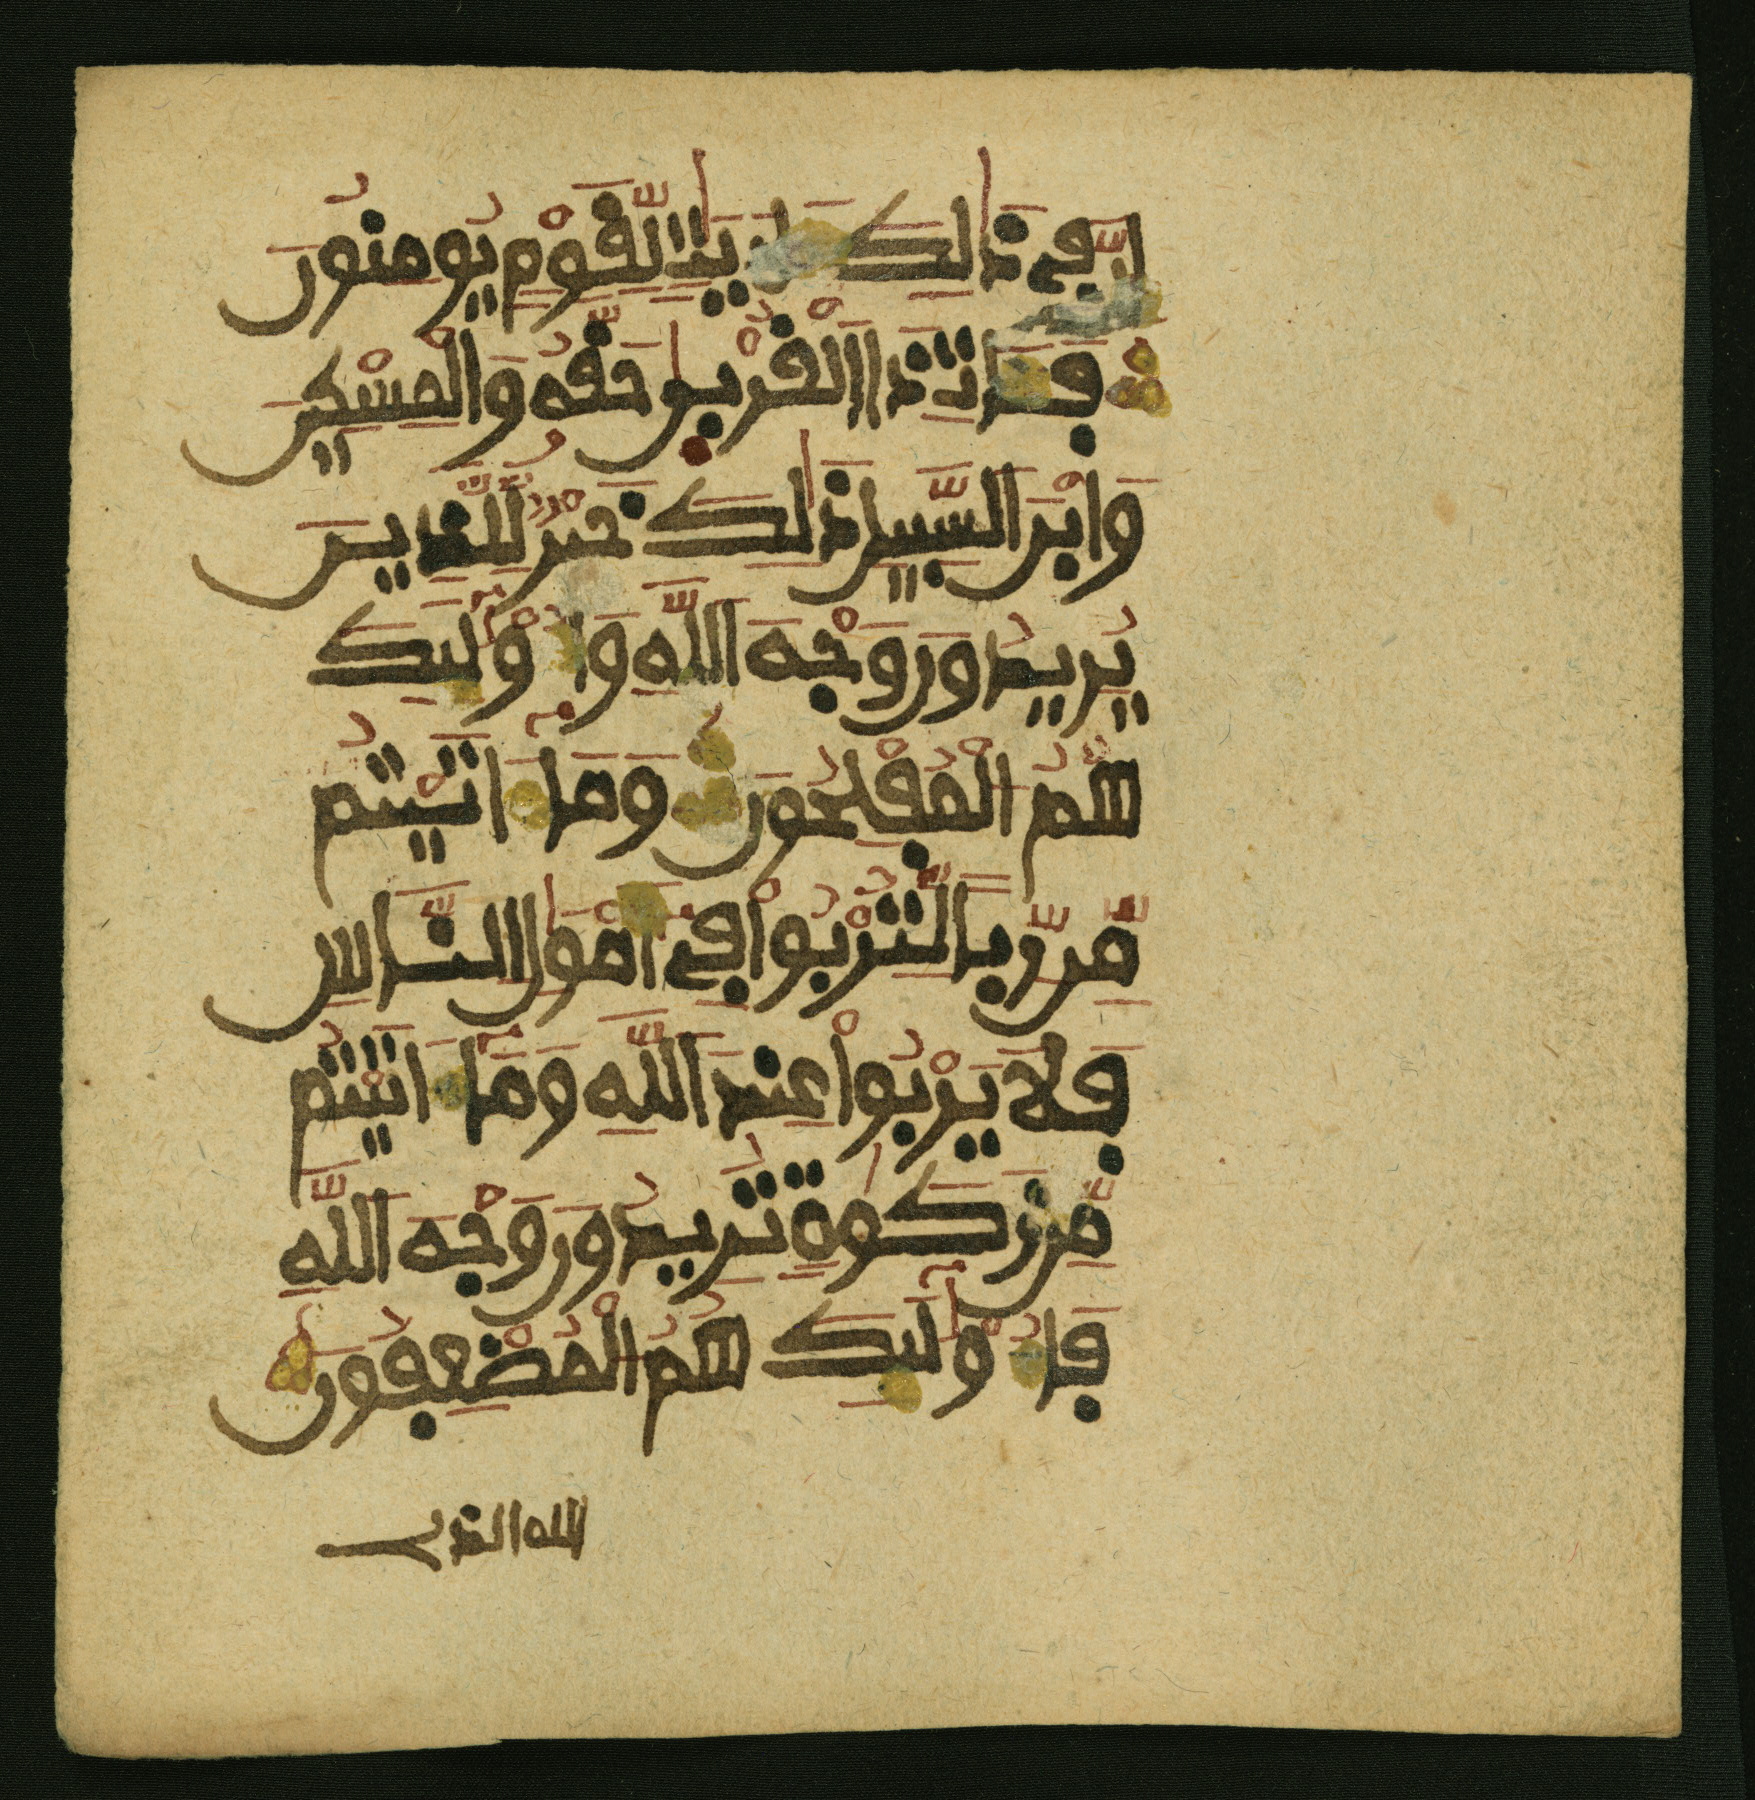 إِنَّ فِي ذَٰلِكَ لَأَيَٰتٍ لِّقَوْمٍ يُومِنُونَ
فَـَٔاتِ ذَا اَلْقُرْبَىٰ حَقَّهُۥ وَالْمِسْكِينَ
وَابْنَ اَلسَّبِيلِ ذَٰلِكَ خَيْرٌ لِّلَّذِينَ
يُرِيدُونَ وَجْهَ اَللَّهِ وَأُوْلَٰٓئِكَ
هُمُ اَلْمُفْلِحُونَ وَمَآ ءَاتَيْتُم
مِّن رِّبًا لِّتُرْبُواْ فِي أَمْوَٰلِ اِلنَّاسِ
فَلَا يَرْبُواْ عِندَ اَللَّهِ وَمَآ ءَاتَيْتُم
مِّن زَكَوٰةٍ تُرِيدُونَ وَجْهَ اَللَّهِ
فَأُوْلَٰٓئِكَ هُمُ اَلْمُضْعِفُونَ
الله الذي